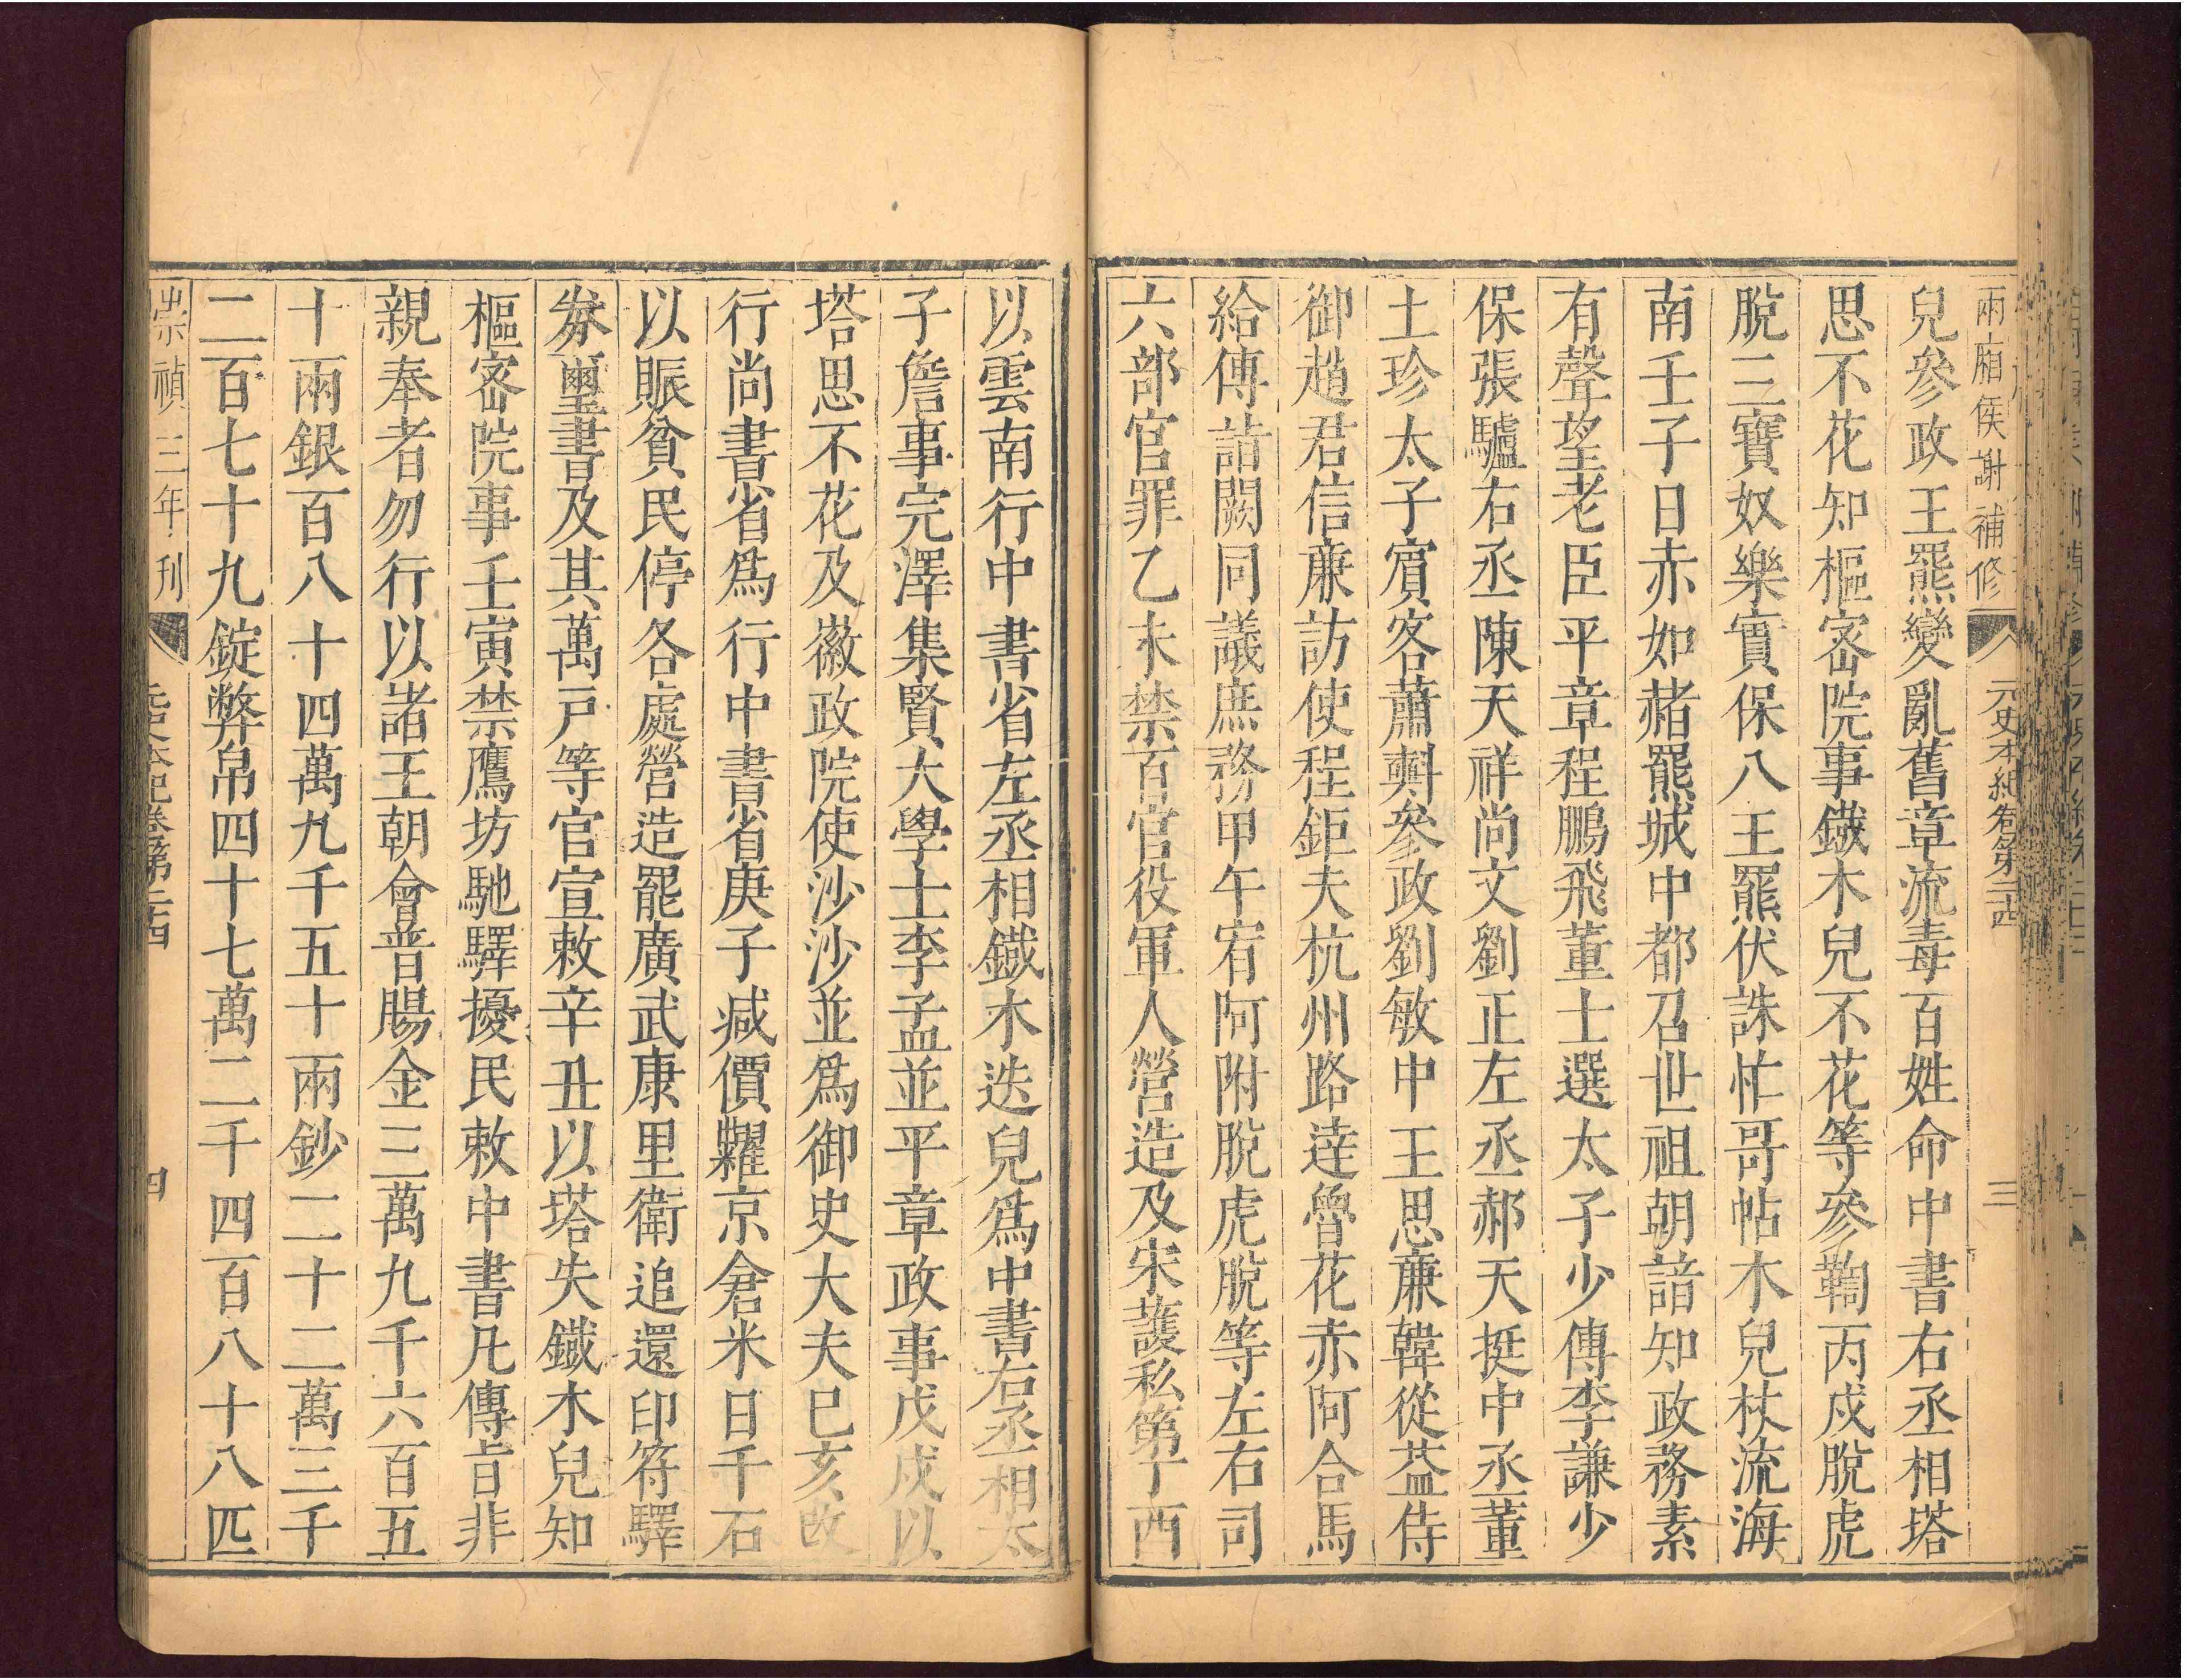 兩廂侯謝補修 元史本紀卷第二十四 三
兒參政王羆變亂舊章流毒百姓命中書右丞相塔
思不花知樞密院事鐵木兒不花等參鞫丙戌脫虎
脫三寶奴樂實保八王羆伏誅忙哥帖木兒杖流海
南壬子日赤如赭羆城中都召世祖朝諳知政務素
有聲望老臣平章程鵬飛董士選太子少傅李謙少
保張驢右丞陳天祥尚文劉正左丞郝天挺中丞董
士珍太子賓客蕭㪺參政劉敏中王思廉韓從益侍
御趙君信廉訪使程鉅夫杭州路達魯花赤阿合馬
給傳詣闕同議庶務甲午宥阿附脫虎脫等左右司
六部官罪乙未禁百官役軍人營造及宋護私第丁酉
以雲南行中書省左丞相鐵木迭兒爲中書右丞相太
子詹事完澤集賢大學士李孟並平章政事戊戌以
塔思不花及徽政院使沙沙並爲御史大夫巳亥改
行尚書省爲行中書省庚子减價糶京倉米日千石
以賑貧民停各處營造罷廣武康里衛追還印符驛
劵璽書及其萬戸等官宣敕辛丑以塔失鐵木兒知
樞密院事壬寅禁鷹坊馳驛擾民敕中書凡傳旨非
親奉者勿行以諸王朝會普賜金三萬九千六百五
十兩銀百八十四萬九千五十兩鈔二十二萬三千
二百七十九錠幣帛四十七萬二千四百八十八匹
崇禎三年刊 元史本紀卷第二十四 四